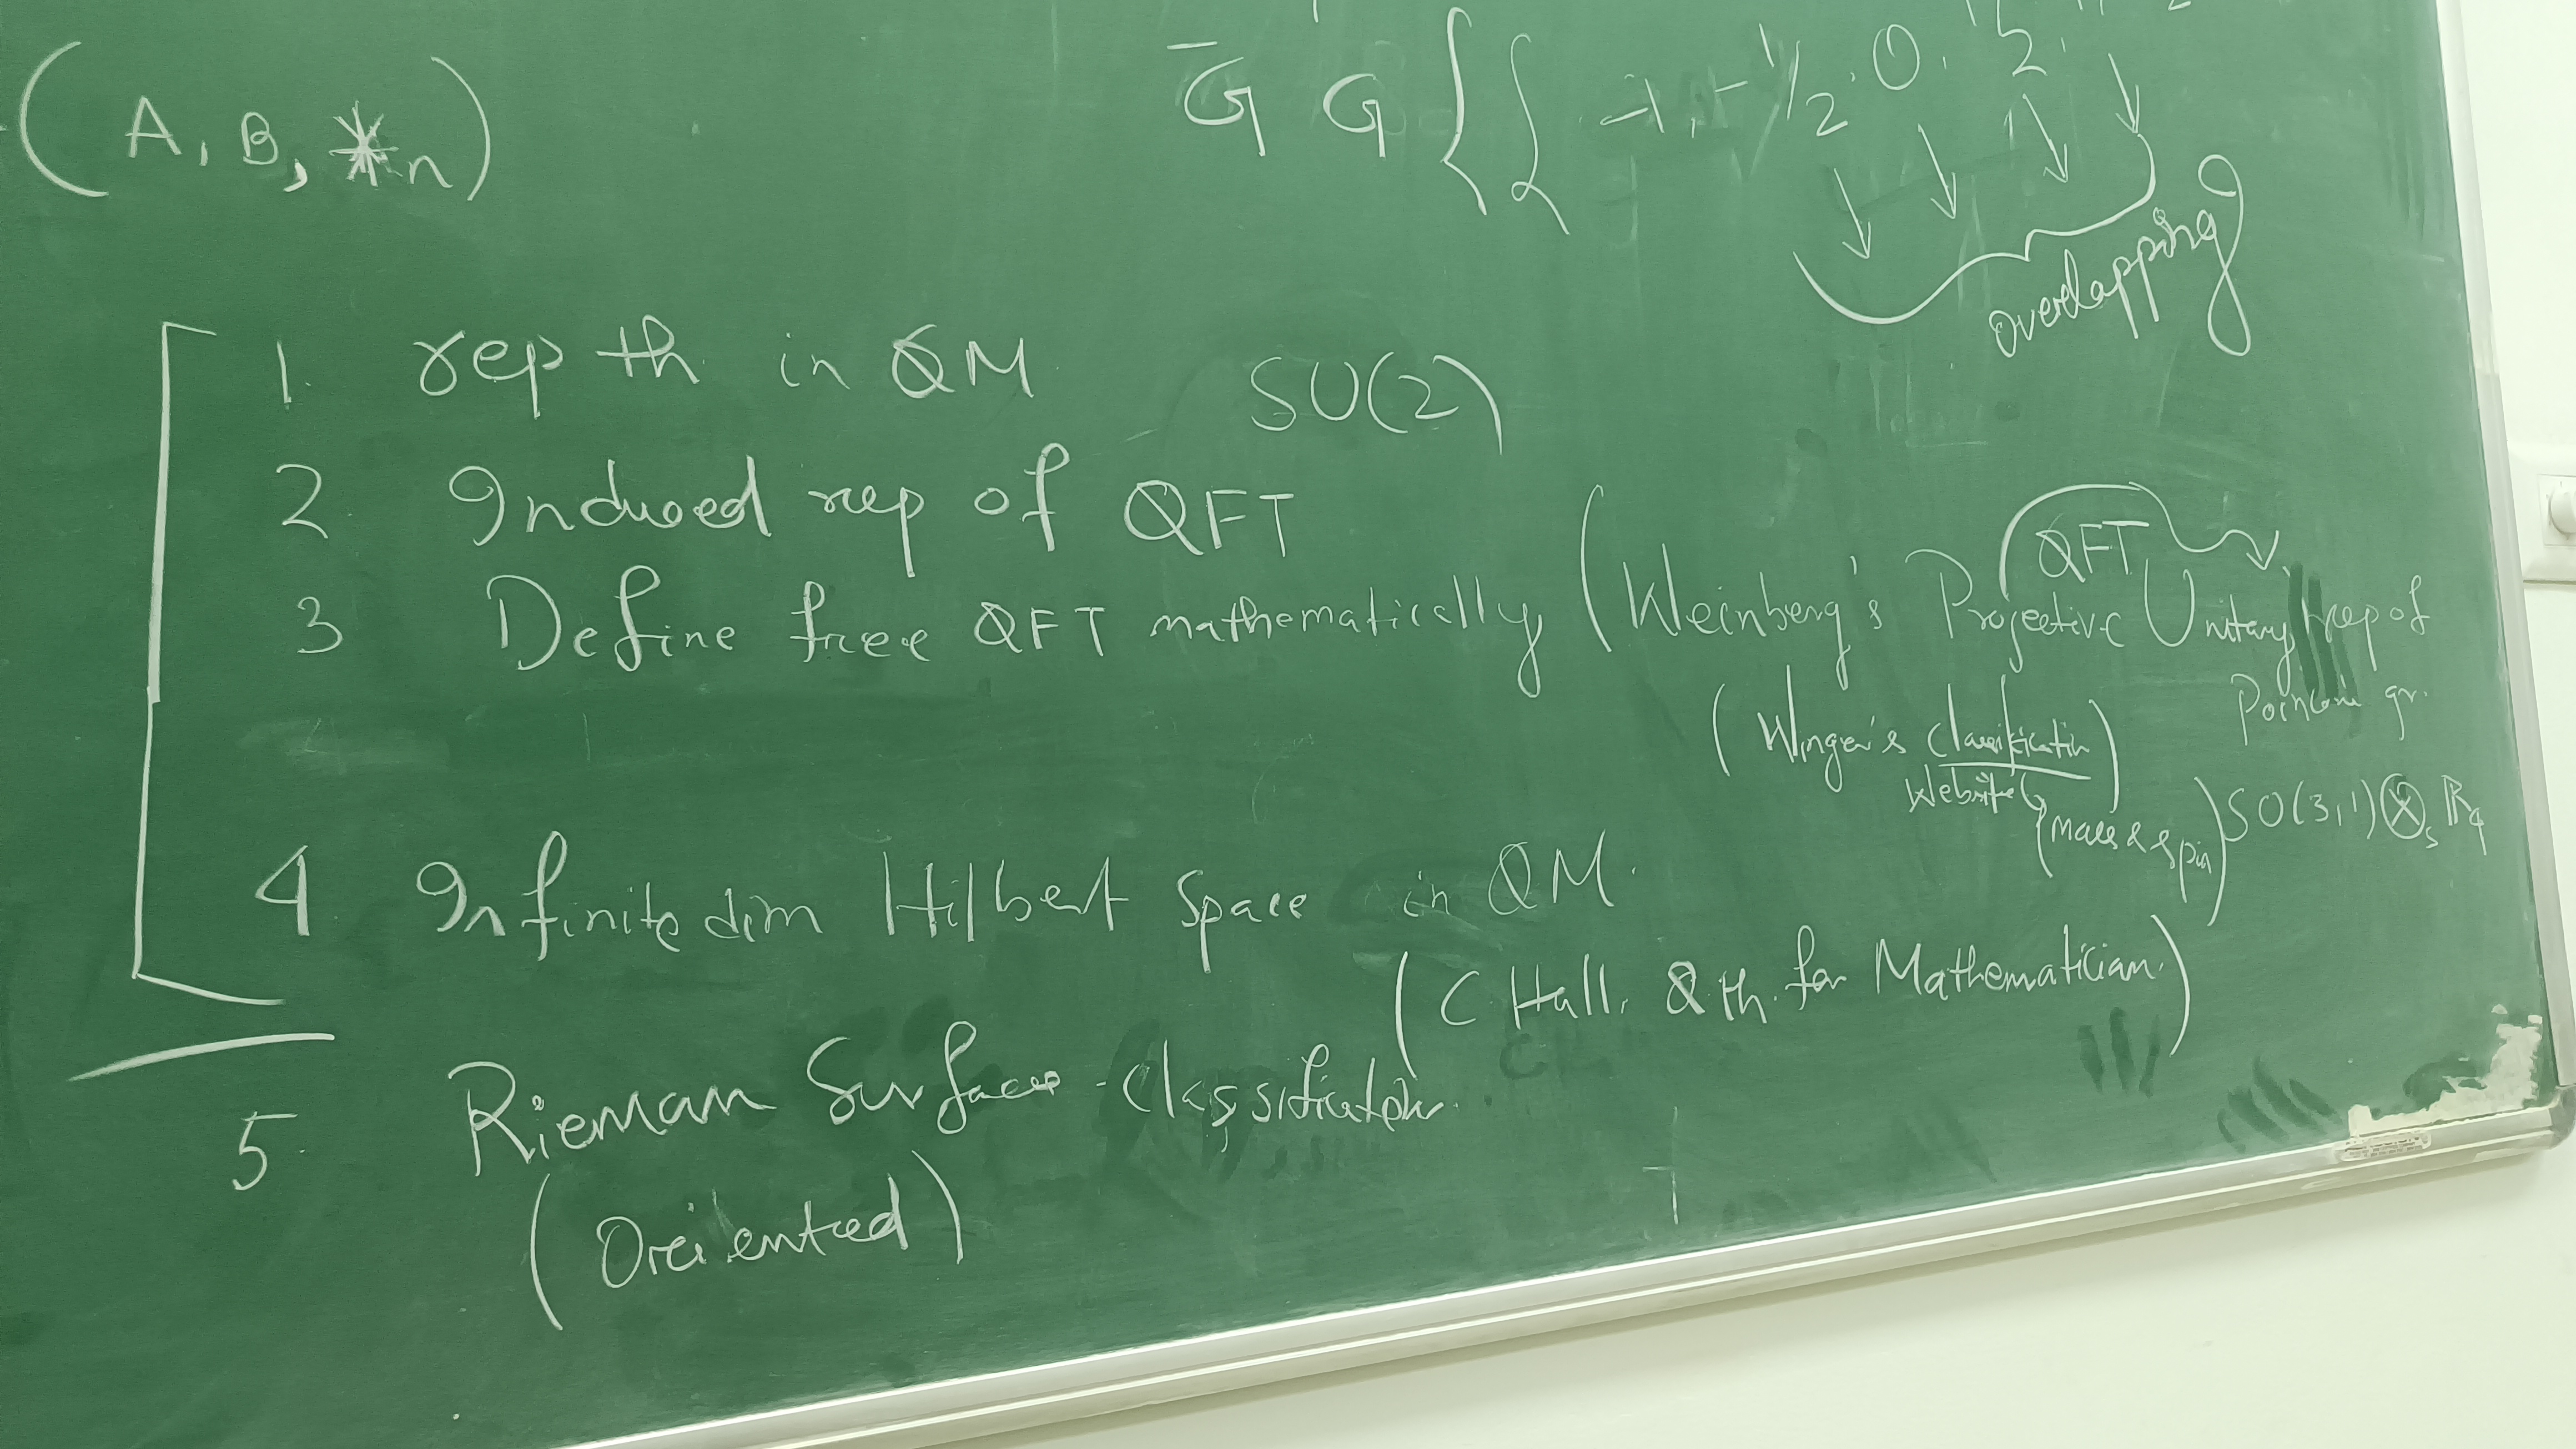 (A, B, *n)
G̅ G { { -1, -1/2, 0, 1/2,
overlapping
1. rep th. in QM SU(2)
2 Induced rep of QFT
QFT
3 Define free QFT mathematically (Weinberg's Projective Unitary rep of
Poincare gr.
(Winger's Classification)
Website
(mass & spin) SO(3,1) ⊗s R4
4 Infinite dim Hilbert Space in QM.
(C Hall, Q th. for Mathematician.)
5. Rieman Surfaces - Classification.
(Oriented)